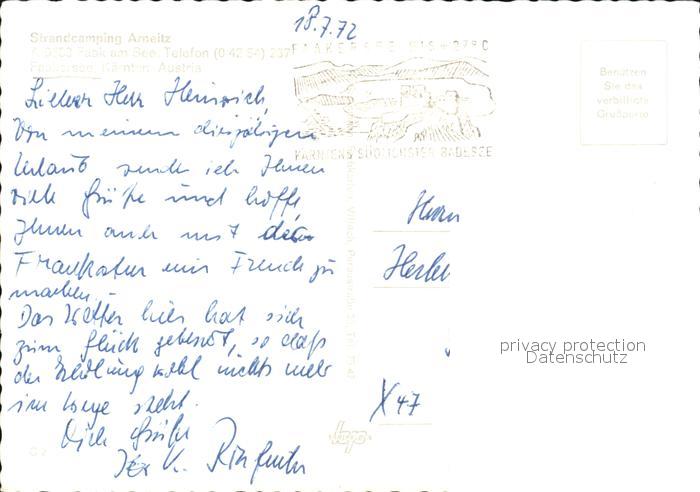 18.7.72
Strandcamping Arneitz
Faak am See, Telefon (0 42 54) 237
Faakersee, Kärnten, Austria
FAAKERSEE BIS +27°C
KÄRNTENS SÜDLICHSTER BADESEE
Benützen
Sie das
verbilligte
Grußporto
Lieber Herr Heinrich,
Von meinem diesjährigen
Urlaub sende ich Ihnen
viele Grüße und hoffe,
Ihnen auch mit der
Frankatur eine Freude zu
machen. -
Das Wetter hier hat sich
zum Glück gebessert, so daß
der Erholung wohl nichts mehr
im Wege steht.
Viele Grüße
Ihr K.
Herrn
X 47
privacy protection
Datenschutz